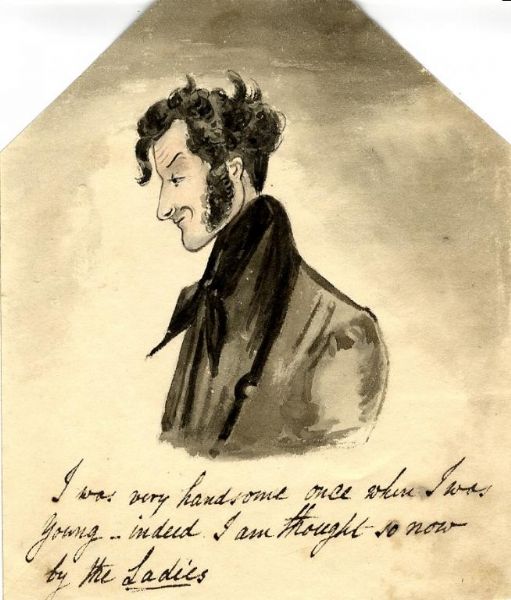 I was very handsome once when I was
Young - indeed I am thought so now
by the Ladies